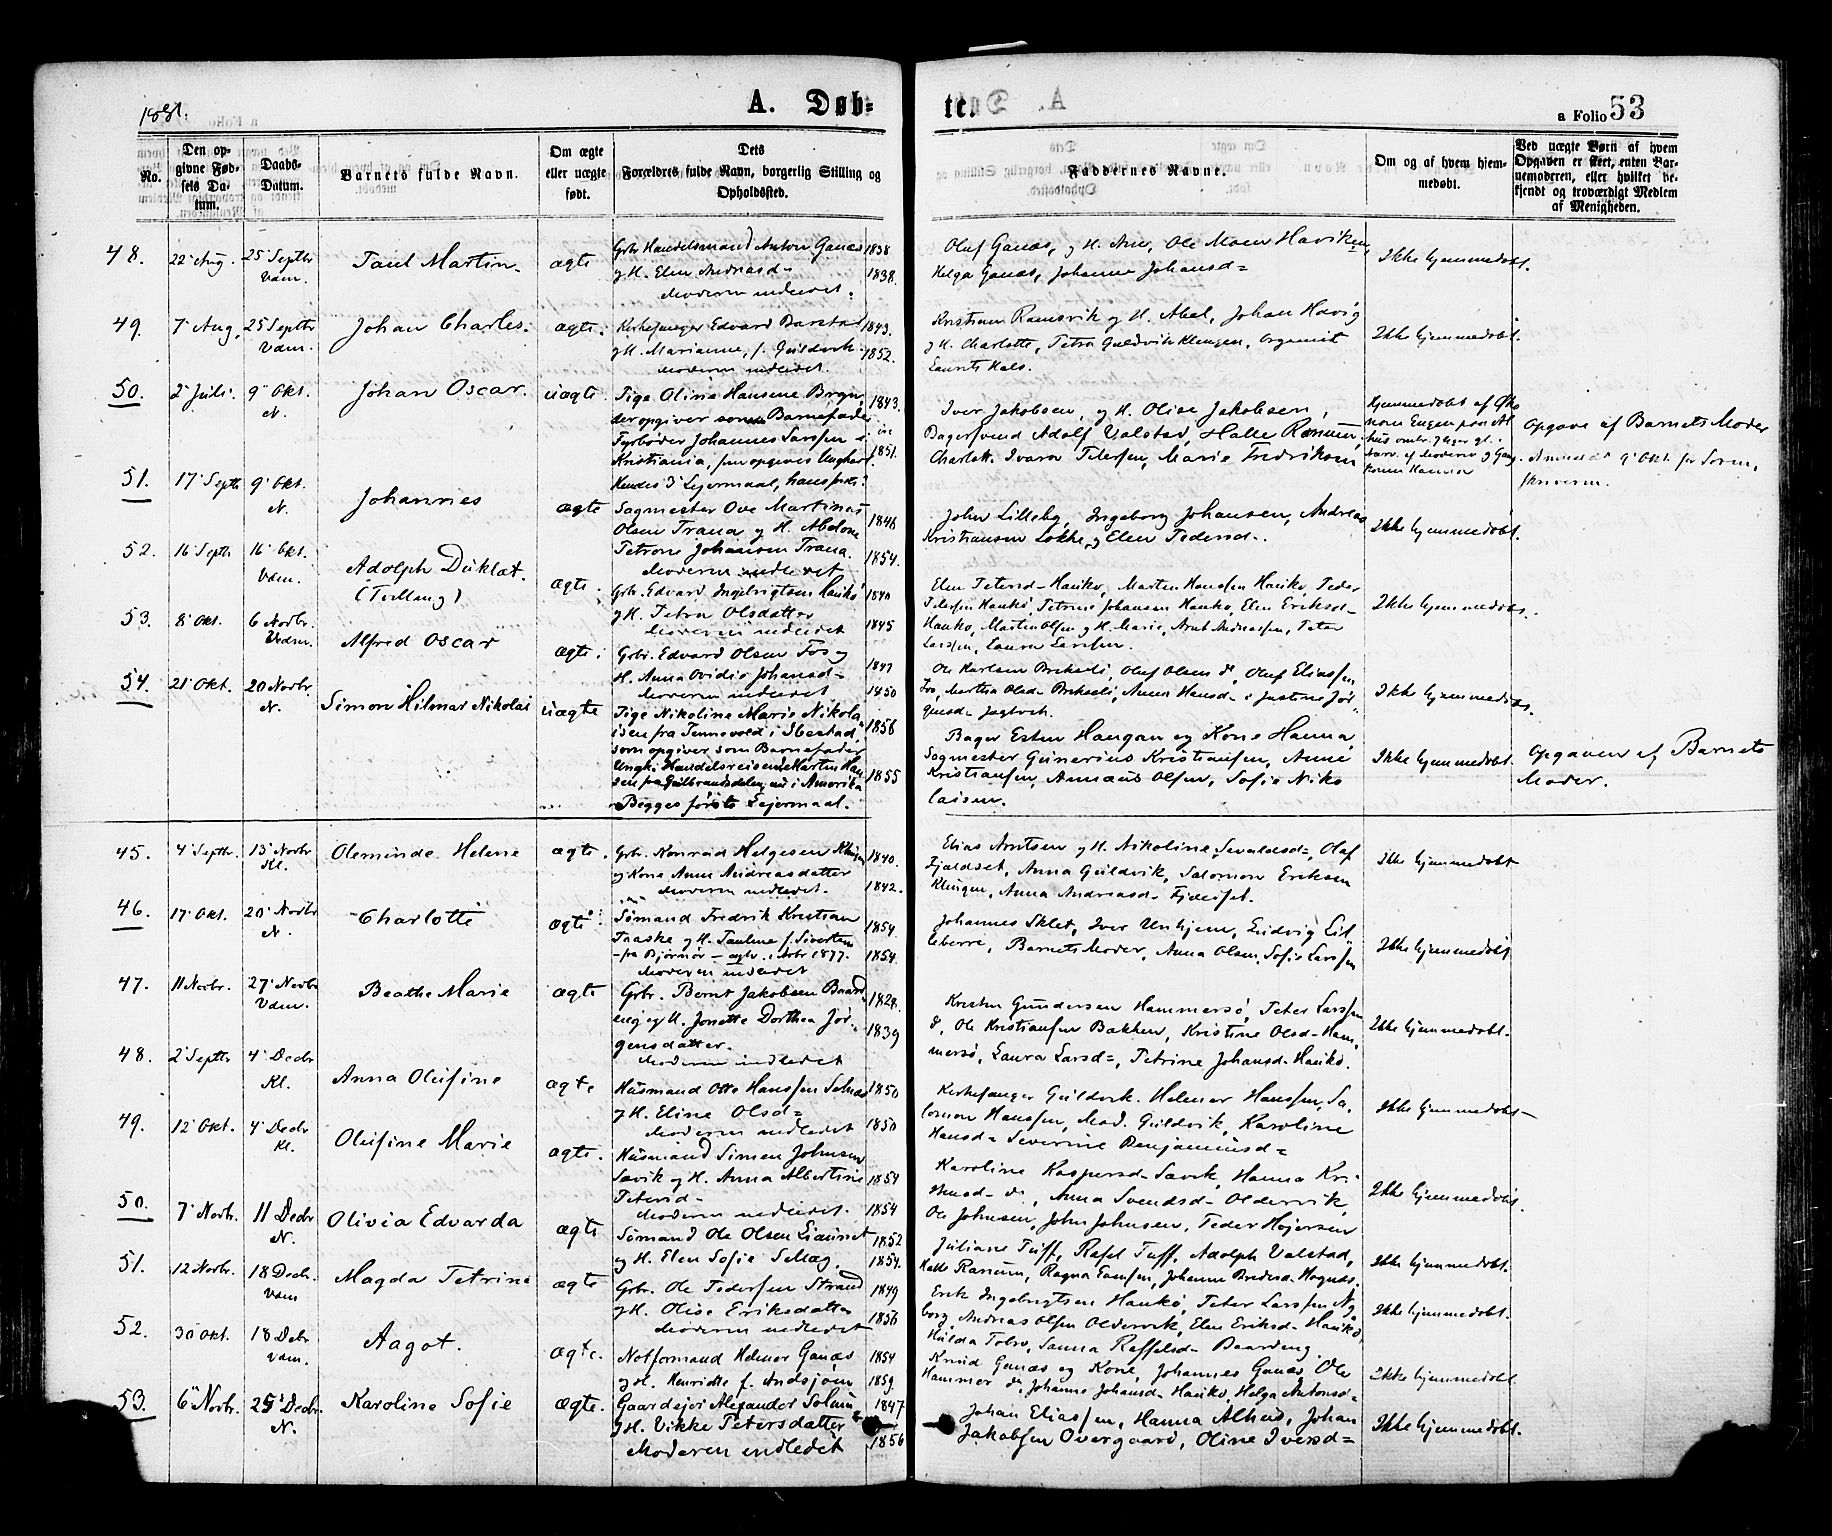 1881.
A. Døb=
te.
a Folio 53
No.
Den op-
givne Fød-
sels Da-
tum.
Daabs-
Datum.
Barnets fulde Navn.
Om ægte
eller uægte
født.
Dets
Forældres fulde Navn, borgerlig Stilling og
Opholdssted.
Faddernes Navne.
Om og af hvem hjem-
medøbt.
Ved uægte Børn af hvem
Opgaven er skeet, enten Bar-
nemoderen, eller hvilket be-
kjendt og troværdigt Medlem
af Menigheden.
48.
22 Aug.
25 Septbr
Vdm.
Paul Martin
ægte
Gbr. Handelsmand Anton Ganæs 1838
og H. Elen Andreasd= 1838.
Moderen indledet.
Oluf Ganæs, og H. Ane, Ole Moen Haviken,
Helga Ganæs, Johanne Johansd=
Ikke hjemmedøbt.
49.
7 Aug.
25 Septbr
Vdm.
Johan Charles.
ægte.
Kirkesanger Edvard Barstad 1843.
og H. Marianne, f. Guldvik 1852.
Moderen indledet.
Kristian Ramsvik og H. Abel, Johan Havig
og H. Charlotte, Petra Guldvik Klingen, Organist
Laurits Hals.
Ikke hjemmedøbt.
50.
2 Juli.
9 Okt.
N.
Johan Oscar.
uægte.
Pige Oline Hansine Bryn, 1843.
der opgiver som Barnefader
Fyrbøder Johannes Larssen i
Kristiania, som opgives Ungkarl. 1851.
Iver Jakobsen, og H. Olise Jakobsen,
Bagersvend Adolf Valstad, Halle Ranum,
Charlott. Ivara Petersen, Marie Fredriksen
Hjemmedøbt af
Opgave af Barnets Moder
Anmeldt 9 Okt. for Soren-
skriveren.
51.
17 Septb
9 Okt.
N.
Johannes
ægte
Sagmester Ove Martinus 1846
Olsen Trana og H. Abelone
Petrone Johansen Trana. 1854.
Moderen indledet
John Lilleby, Ingeborg Johansen, Andreas
Kristiansen Løkke, og Elen Pedersd.
Ikke hjemmedøbt.
52.
16 Septb
16 Okt.
Vdm.
Adolph Duklat.
(Tvilling)
ægte.
Gbr. Edvard Ingebrigtsen Haukø 1840
og H. Petra Olsdatter 1845
Moderen indledet
Elen Petersd= Haukø, Marten Hansen Haukø, Peder
Petersen Haukø, Petrine Johansen Haukø, Elen Eriksd=
Haukø, Martin Olsen og H. Marie, Arnt Andreassen, Peter
Larssen, Laura Larssen.
Ikke hjemmedøbt.
53.
8 Okt.
6 Novbr.
Vdm.
Alfred Oscar
ægte.
Gbr. Edvard Olsen Fos og 1847
H. Anna Ovidie Johansd= 1850
Moderen indledet
Ole Karlsen Brekseli, Oluf Olsen do, Oluf Eliassen
Fos, Martha Olsd= Brekseli, Anne Hansd=, Justine Jør-
gensd= Jagtvik.
Ikke hjemmedøbt.
54.
21 Okt.
20 Novbr.
N.
Simon Hilmar Nikolai
uægte
Pige Nikoline Marie Nikola- 1856
isen fra Tennevold i Ibestad,
som opgiver som Barnefader
Ungk. Handelsreisende Marten Han-
sen fra Gulbrandsdalen, nu i Amerika 1855
Begges første Leiermaal.
Bager Esten Haugan og Kone Hanna,
Sagmester Gunerius Kristiansen, Anne
Kristiansen, Annæus Olsen, Sofie Niko
laisen.
Ikke hjemmedøbt.
Opgaven af Barnets
Moder.
45.
4 Septbr.
13 Novbr
Kl.
Oleminde Helene
ægte.
Gbr. Konrad Helgesen Klingen 1840.
og Kone Anne Andreasdatter 1842.
Moderen indledet.
Elias Arntsen og H. Nikoline Sevaldsd=, Olaf
Fjeldset, Anna Guldvik, Salomon Eriksen
Klingen, Anna Andreasd= Fjeldset.
Ikke hjemmedøbt
46.
17 Okt.
20 Novbr
N.
Charlotte
ægte
Sømand Fredrik Kristian 1854
Traske og H. Pauline f. Sivertsen 1854.
fra Bjørnør — egtv. i Nvbr 1877.
Moderen indledet
Johannes Sklet, Iver Unhjem, Ludvig Lil-
leberre, Barnets Moder, Anna Olsen, Sofie Larssen
Ikke hjemmedøbt
47.
11 Novbr.
27 Novbr
Vdm.
Beathe Marie
ægte
Gbr. Bernt Jakobsen Baard- 1828.
eng og H. Jonette Dorthea Jør- 1839
gensdatter.
Moderen indledet
Kristen Gundersen Hammersø, Peter Larssen
do, Ole Kristiansen Bakken, Kristine Olsd= Ham-
mersø, Laura Larsd=, Petrine Johansd= Haukø.
Ikke hjemmedøbt.
48.
2 Septbr
4 Decbr
Kl.
Anna Olufine
ægte
Husmand Otto Hanssen Selnæs 1850
og H. Eline Olsd= 1850
Moderen indledet
Kirkesanger Guldvik. Helmer Hanssen, Sa-
lomon Hanssen, Mad. Guldvik, Karoline
Hansd= Severine Benjaminsd=
Ikke hjemmedøbt
49.
12 Okt.
4 Decbr
Kl.
Olufine Marie
ægte.
Husmand Simon Johnsen 1854
Savik og H. Anna Albertine
Petersd= 1854
Moderen indledet.
Karoline Kaspersd= Savik, Hanna Kri-
stensd= do, Anna Svendsd= Oldervik,
Ole Johnsen, John Johnsen, Peder Højersen
Ikke hjemmedøbt.
50.
7 Novbr.
11 Decbr
N.
Olivia Edvarda
ægte
Sømand Ole Olsen Liaunet 1852
og H. Elen Sofie Selläg. 1854.
Juliane Tuff, Rafel Tuff, Adolph Valstad,
Halle Ranum, Ragna Edvardsen, Johanne Hognæs.
Ikke hjemmedøbt.
51.
12 Novbr.
18 Decbr.
Vdm
Magda Petrine
ægte
Gbr. Ole Pedersen Strand 1849
og H. Olise Eriksdatter 1856
Moderen indledet
Erik Ingebrigtsen Haukø, Peter Larssen Ny-
borg, Andreas Olsen Oldervik, Elen Eriksd= Haukø,
Hulda Tolv, Sanna Raffelsd= Baardeng.
Ikke hjemmedøbt.
52.
30 Okt.
18 Debr
Vdm.
Aagot.
ægte.
Notformand Helmer Ganæs 1854
og H. Henriette f. Andsjøen 1859.
Knud Ganæs og Kone, Johannes Ganæs, Ole
Hammer do, Johanne Johansd= Haukø, Helga Antonsd=
Ikke hjemmedøbt
53.
6 Novbr.
25 Decbr
N.
Karoline Sofie
ægte.
Gaardejer Alexander Solum 1847
og H. Vikke Petersdatter 1856
Moderen indledet
Johan Eliassen, Hanna Alhus, Johan
Jakobsen Overgaard, Oline Iversd=
Ikke hjemmedøbt.